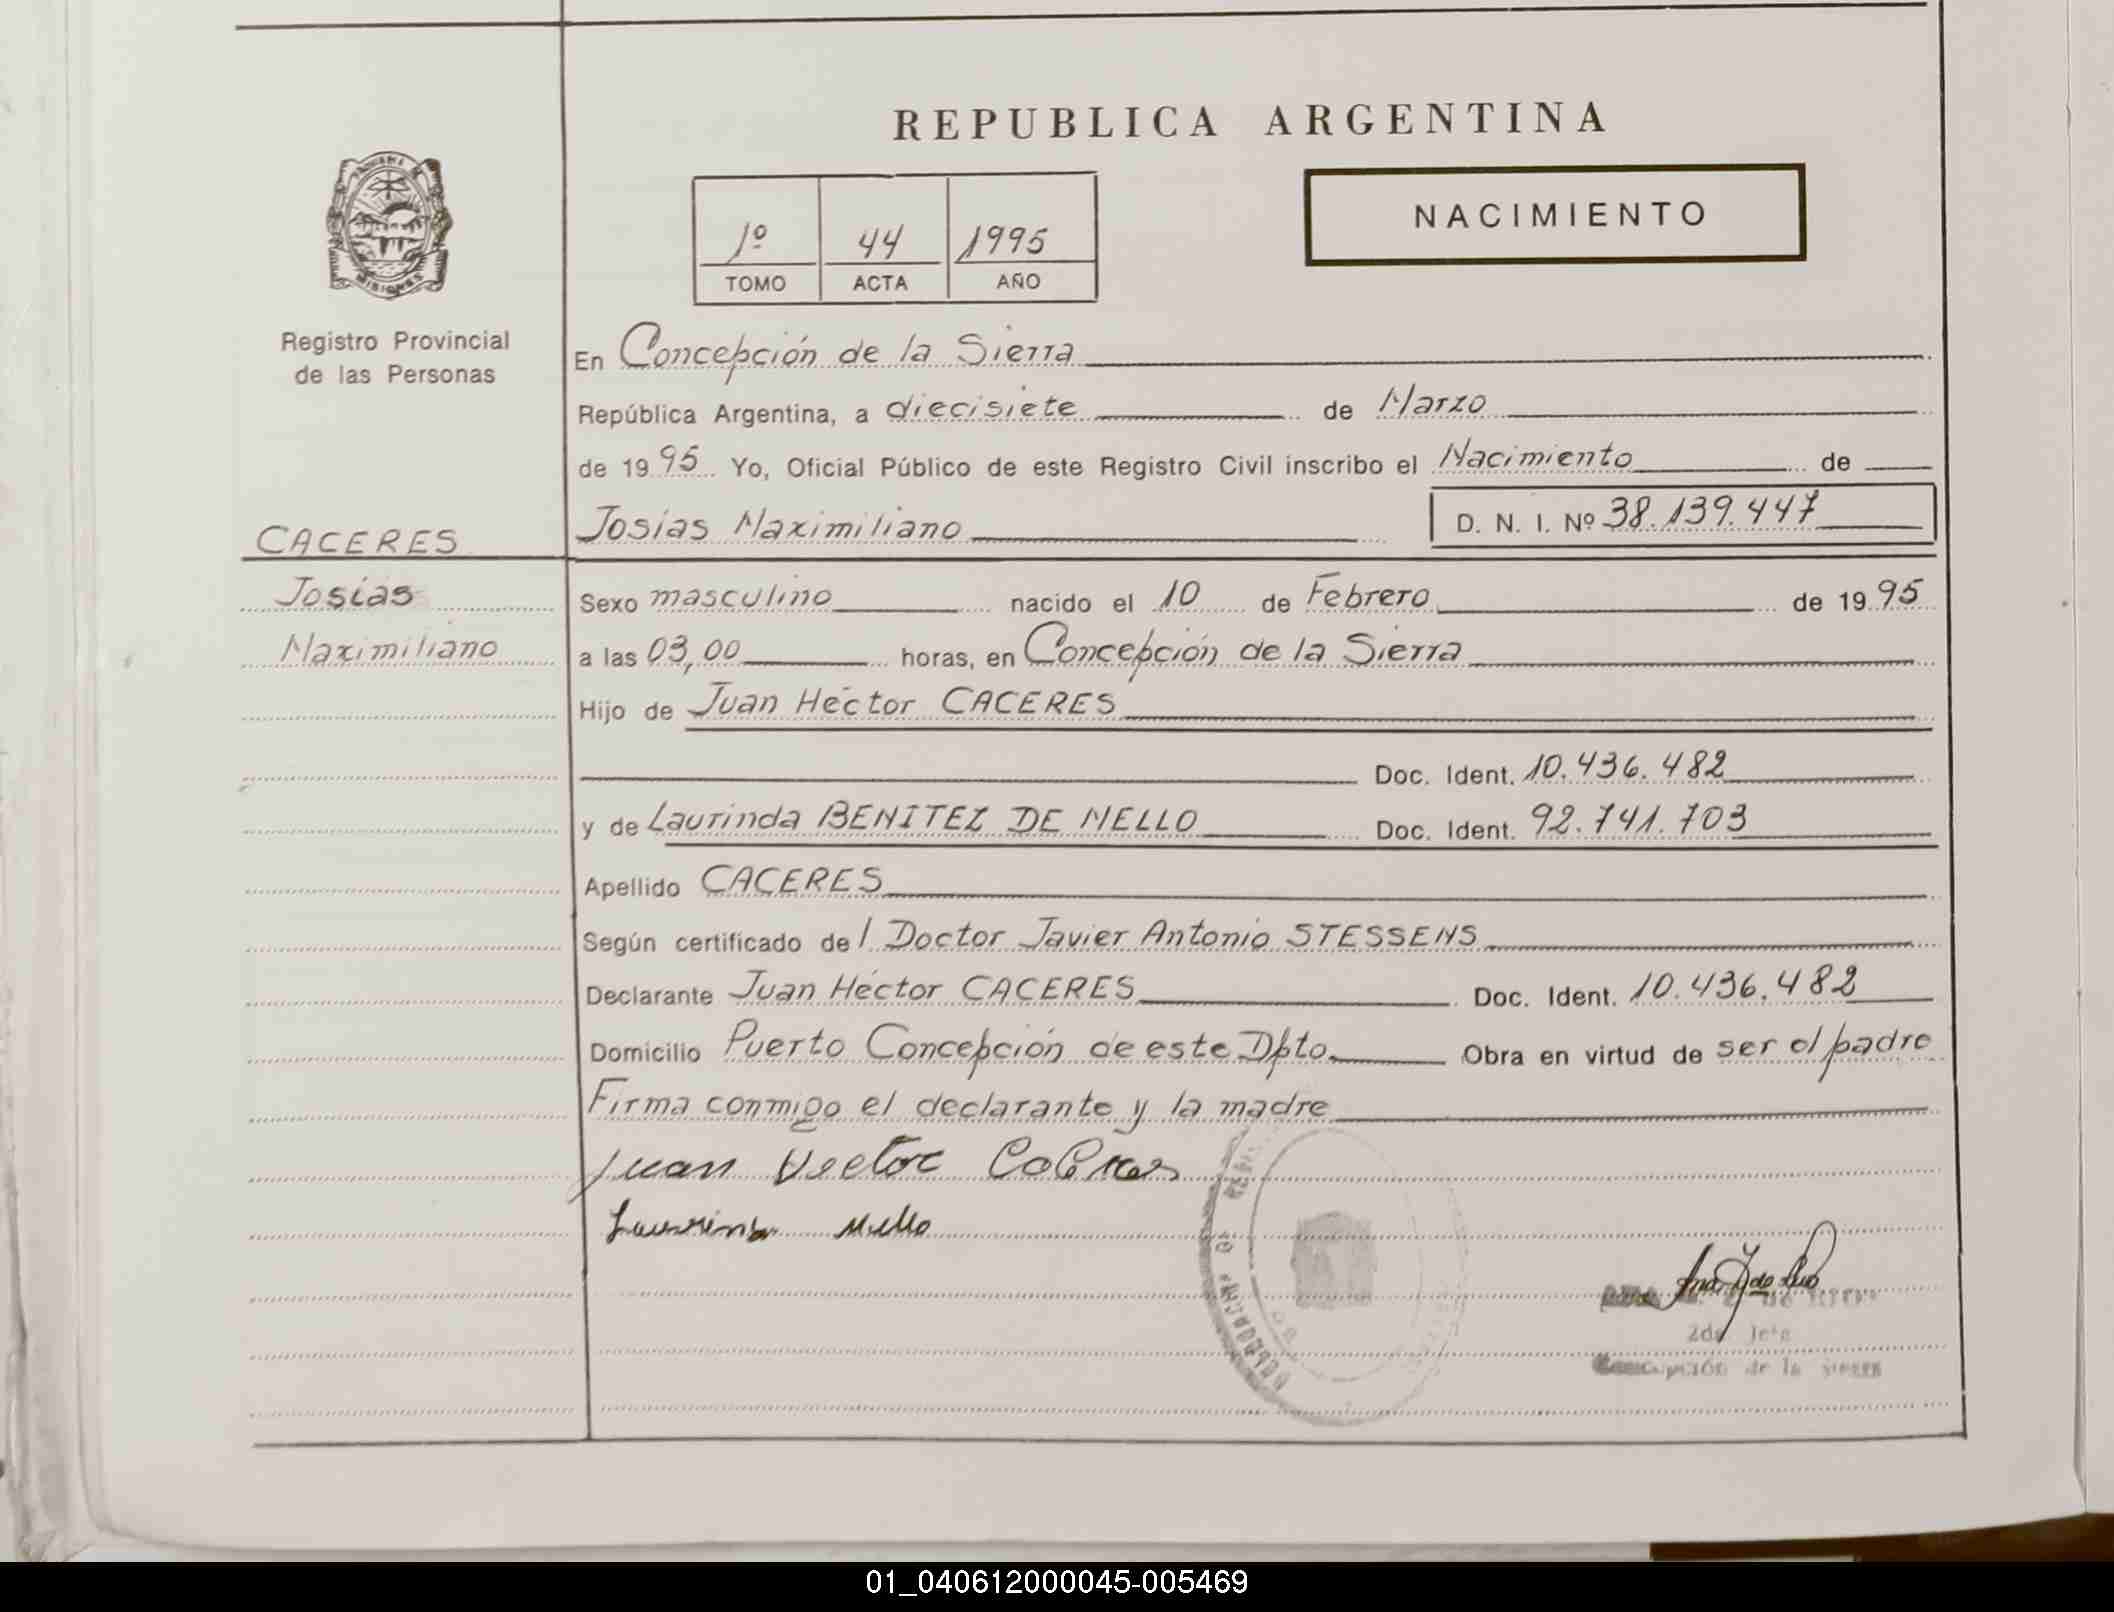 REPUBLICA ARGENTINA
NACIMIENTO
1º 44 1995
TOMO ACTA AÑO
MISIONES
Registro Provincial
de las Personas
En Concepción de la Sierra
República Argentina, a diecisiete de Marzo
de 1995 Yo, Oficial Público de este Registro Civil inscribo el Nacimiento de
Josías Maximiliano D. N. I. Nº 38.139.447
CACERES
Josías
Maximiliano
Sexo masculino nacido el 10 de Febrero de 1995
a las 03,00 horas, en Concepción de la Sierra
Hijo de Juan Héctor CACERES
Doc. Ident. 10.436.482
y de Laurinda BENITEZ DE MELLO Doc. Ident. 92.741.703
Apellido CACERES
Según certificado del Doctor Javier Antonio STESSENS
Declarante Juan Héctor CACERES Doc. Ident. 10.436.482
Domicilio Puerto Concepción de este Dpto. Obra en virtud de ser el padre
Firma conmigo el declarante y la madre
Juan Hector Caceres
Laurinda Mello
2da Jefe
Concepción de la Sierra
01_040612000045-005469